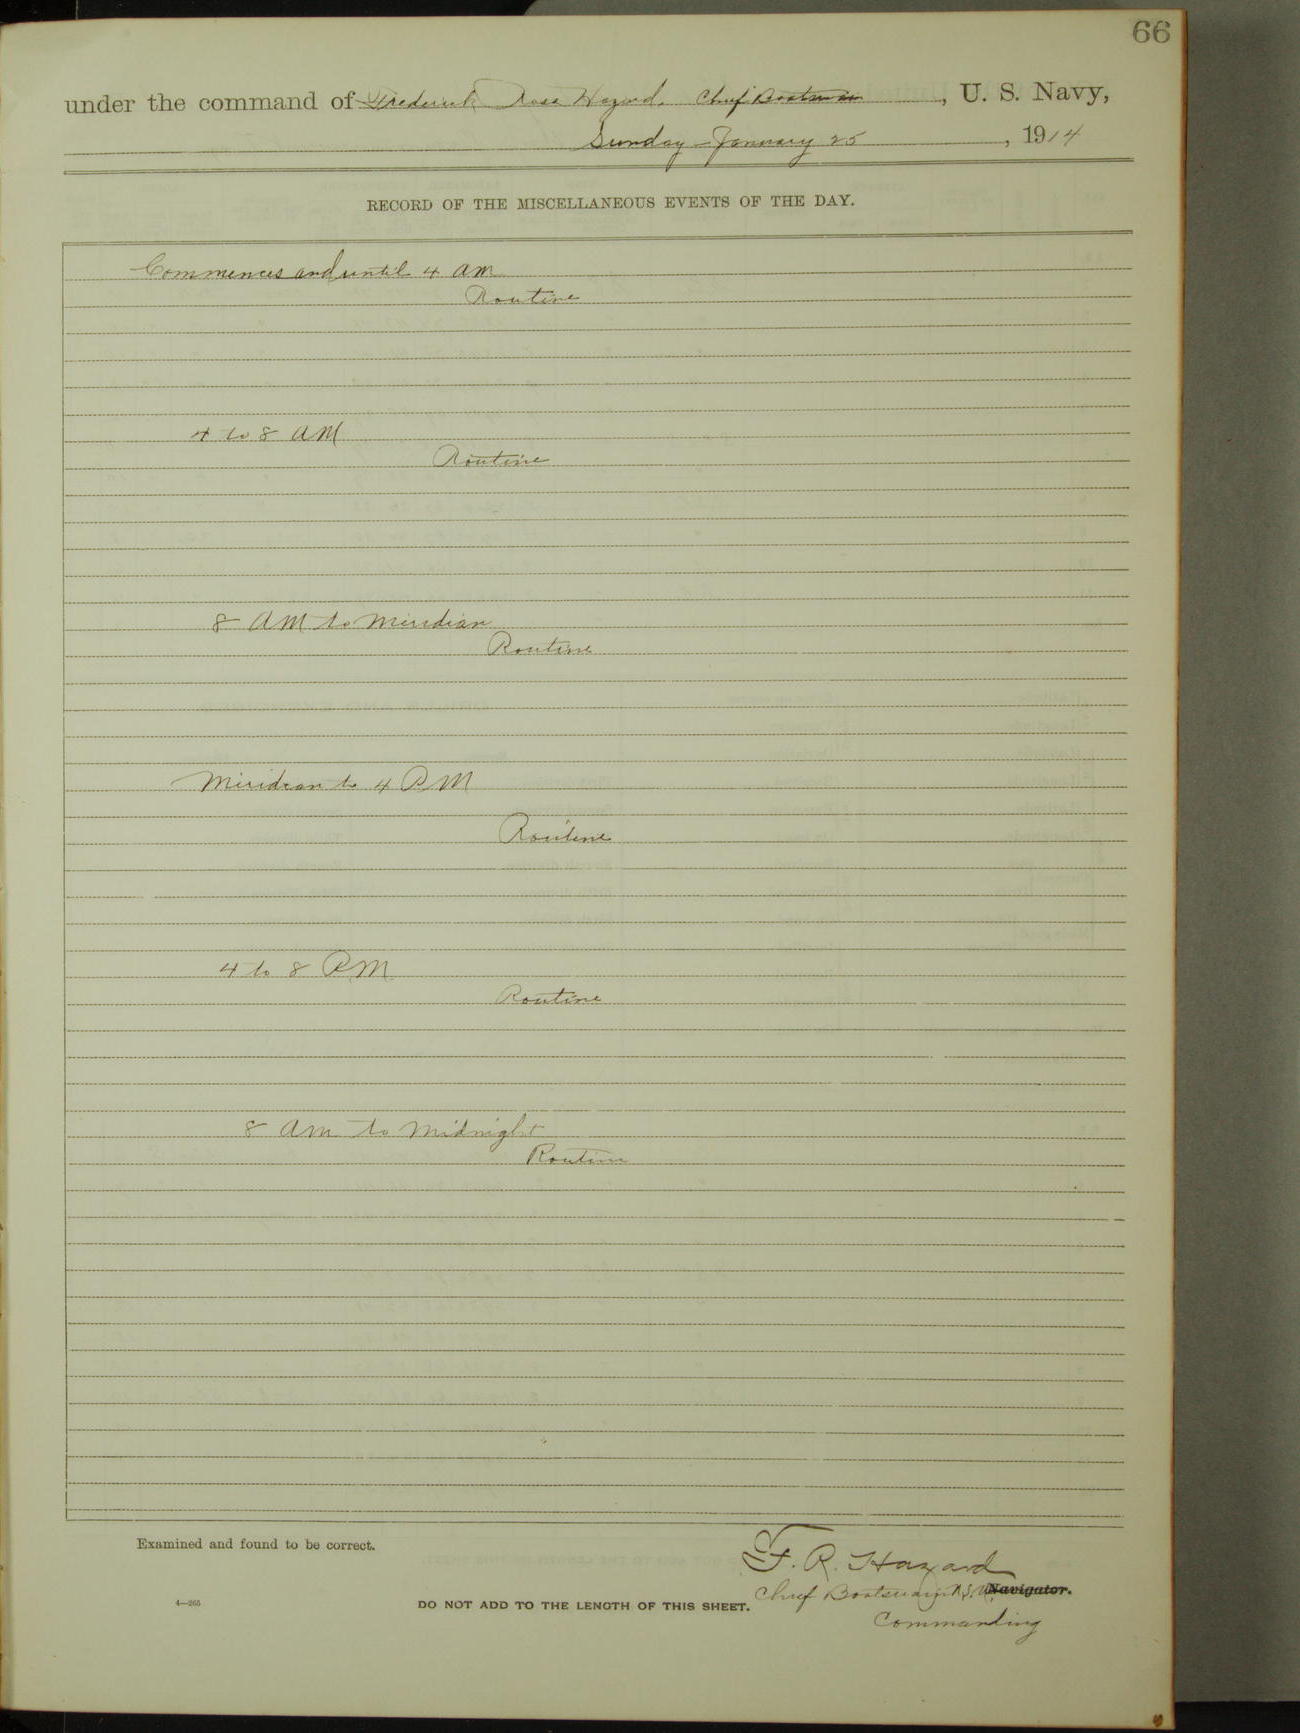 66
under the command of Frederick Ross Hazard. Chief Boatswain, U. S. Navy,
Sunday - January 25, 1914
RECORD OF THE MISCELLANEOUS EVENTS OF THE DAY.
Commences and until 4 am
Routine
4 to 8 AM
Routine
8 AM to Meridian
Routine
Meridian to 4 PM
Routine
4 to 8 PM
Routine
8 am to Midnight
Routine
Examined and found to be correct.
F. R. Hazard
Chief Boatswain U.S.N. Navigator.
Commanding
4—265
DO NOT ADD TO THE LENGTH OF THIS SHEET.